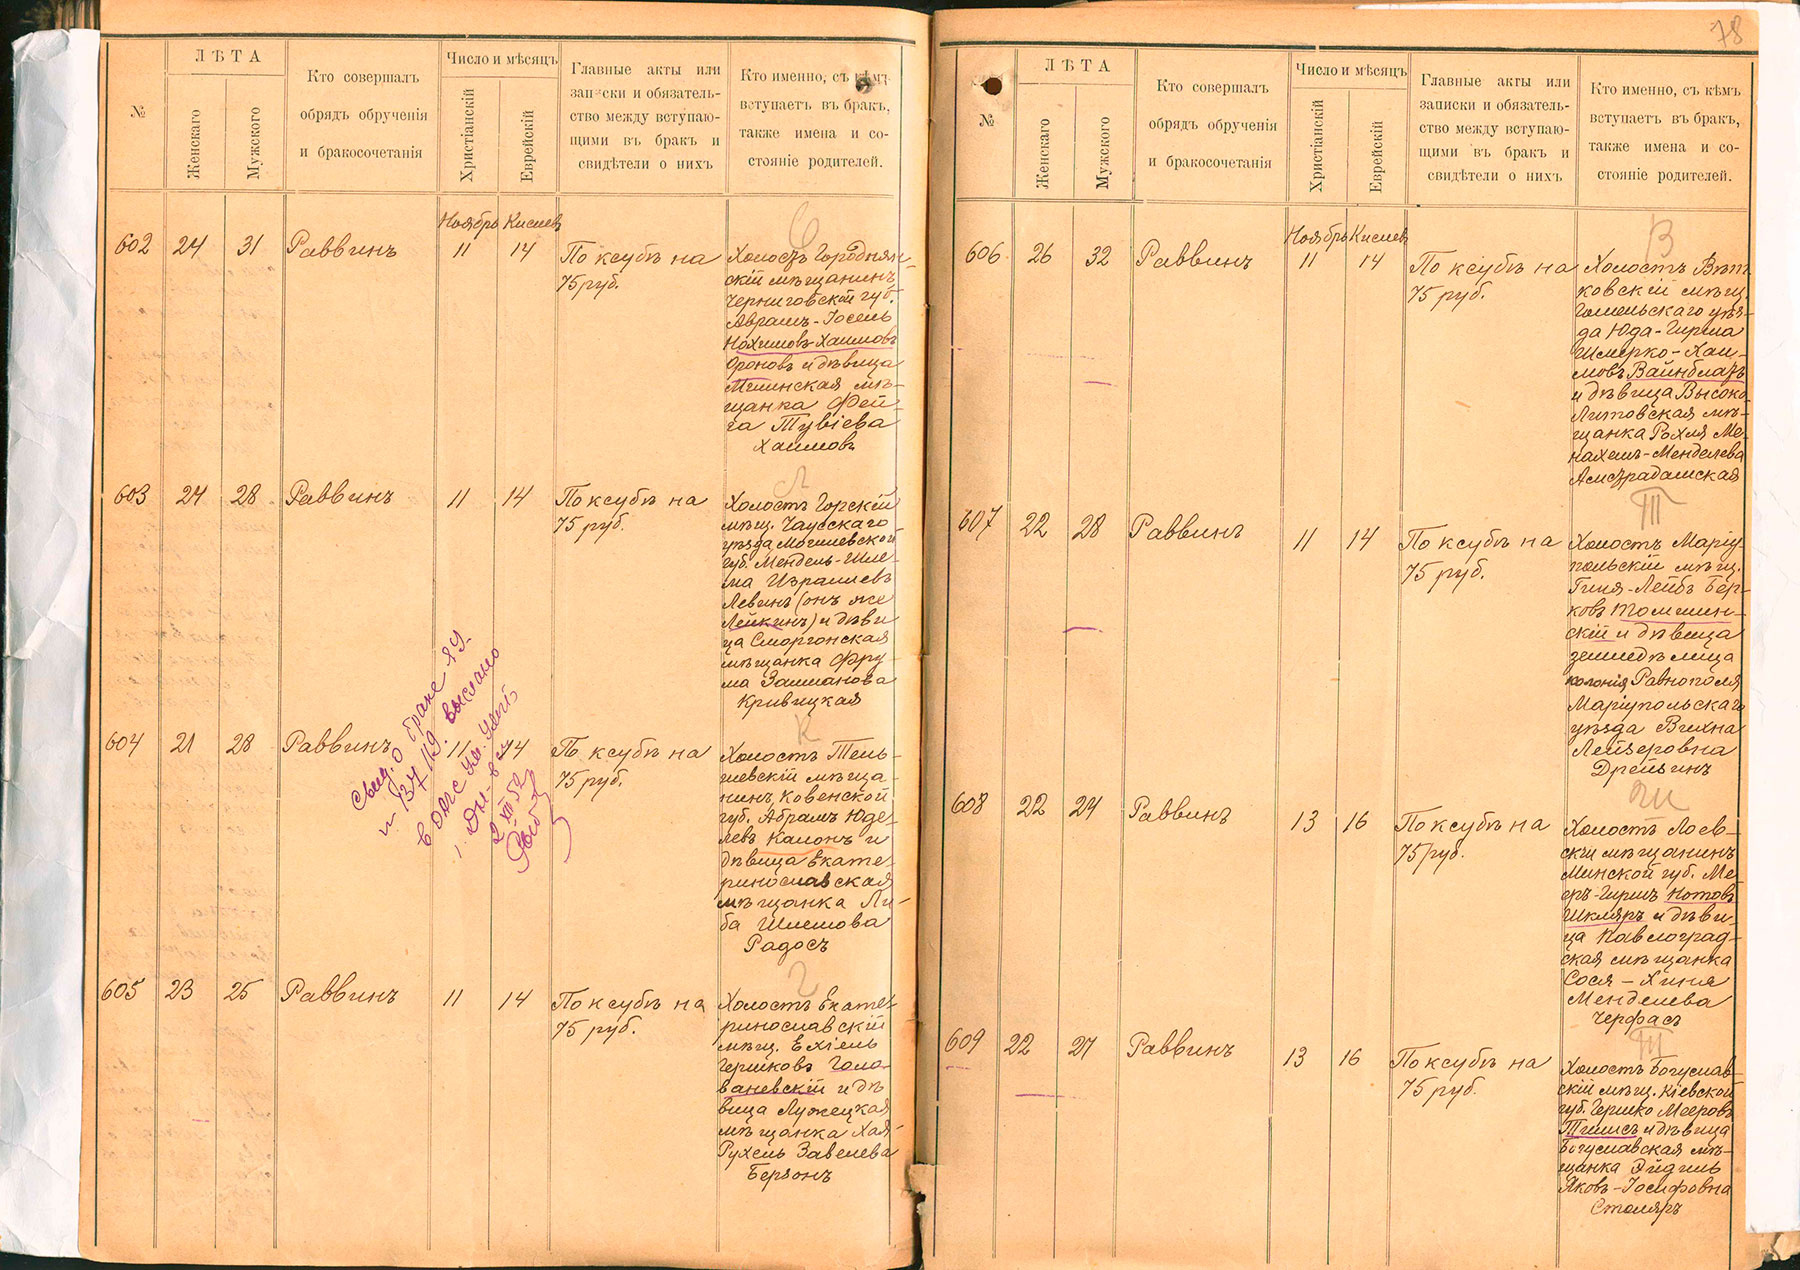 ЛѢТА
№
Женскаго
Мужского
Кто совершалъ
обрядъ обрученія
и бракосочетанія
Число и мѣсяцъ
Христіанскій
Еврейскій
Главные акты или
записки и обязатель-
ство между вступаю-
щими въ бракъ и
свидѣтели о нихъ
Кто именно, съ кѣмъ
вступаетъ въ бракъ,
также имена и со-
стояніе родителей.
Ноябрь Кислев
602 24 31 Раввинъ 11 14 По ксубѣ на
75 руб.
Холостъ Городнян-
скій мѣщанинъ,
Черниговской губ.
Абрамъ-Іосель
Нохимовъ-Хаимовъ
Ороновъ и дѣвица
Мглинская мѣ-
щанка Фей-
га Тувіева
Хаимовъ
603 24 28 Раввинъ 11 14 По ксубѣ на
75 руб.
Л
Холостъ Горскій
мѣщ. Чаусскаго
уѣзда Могилевской
губ. Мендель-Шле-
ма Израилевъ
Левинъ (онъ же
Лейкинъ) и дѣви
ца Сморгонская
мѣщанка Фру-
ма Залманова
Кривицкая
604 21 28 Раввинъ 11 14 По ксубѣ на
75 руб.
К
Холостъ Тель-
шевскій мѣща-
нинъ, Ковенской
губ. Абрамъ Юде-
левъ Капонъ и
дѣвица Екате-
ринославская
мѣщанка Ли-
ба Шлемова
Радосъ
Свид. о браке ЯУ
137119. выслано
в ЗАГС
2 XII 52
605 23 25 Раввинъ 11 14 По ксубѣ на
75 руб.
Г
Холостъ Екате-
ринославскій
мѣщ. Ехіель
Гершковъ Голо-
ваневскій и дѣ
вица Лужецкая
мѣщанка Хая-
Рухель Завелева
Берзонъ
78
№
ЛѢТА
Женскаго
Мужского
Кто совершалъ
обрядъ обрученія
и бракосочетанія
Число и мѣсяцъ
Христіанскій
Еврейскій
Главные акты или
записки и обязатель-
ство между вступаю-
щими въ бракъ и
свидѣтели о нихъ
Кто именно, съ кѣмъ
вступаетъ въ бракъ,
также имена и со-
стояніе родителей.
Ноябрь Кислев
606 26 32 Раввинъ 11 14 По ксубѣ на
75 руб.
В
Холостъ Вѣт-
ковскій мѣщ.
Гомельскаго уѣз-
да Юда-Гирша
Шмерко-Хаи-
мовъ Вайнблатъ
и дѣвица Высоко-
Литовская мѣ-
щанка Рохля Ме-
нахемъ-Менделева
Амстрадамская
607 22 28 Раввинъ 11 14 По ксубѣ на
75 руб.
Т
Холостъ Маріу-
польскій мѣщ.
Гиля-Лейбъ Бер-
ковъ Томшин-
скій и дѣвица
землед ѣлица
колонія Равнополя
Маріупольскаго
уѣзда Вихна
Лейзеровна
Дрейзинъ
608 22 24 Раввинъ 13 16 По ксубѣ на
75 руб.
Ш
Холостъ Лоев-
скій мѣщанинъ
Минской губ. Ме-
еръ-Гиршъ Нотовъ
Шкляръ и дѣви-
ца Павлоград-
ская мѣщанка
Сося-Хиня
Менделева
Черфасъ
609 22 27 Раввинъ 13 16 По ксубѣ на
75 руб.
Т
Холостъ Богуслав-
скій мѣщ. Кіевской
губ. Гершко Мееровъ
Тилисъ и дѣвица
Богуславская мѣ-
щанка Эйдиль
Яковъ-Іосифовна
Столяръ